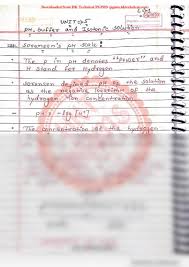 UNIT:-5
pH, buffer and Isotonic solution
Sorensen's pH scale :
The p in pH denotes "Power" and
H stand for Hydrogen
Sorensen defined pH of the solution
as the negative logarithm of the
hydrogen ion concentration
pH = -log [H+]
The concentration of the hydrogen